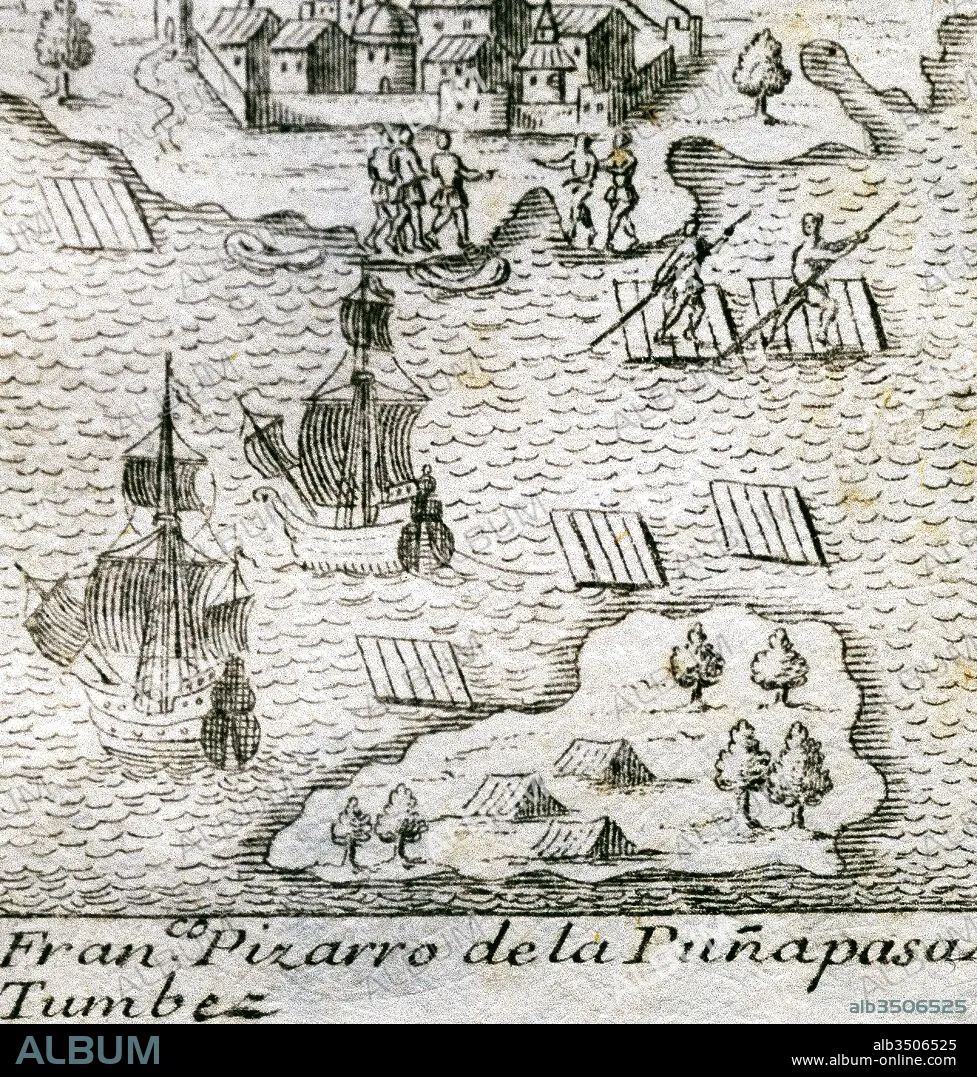 Fran.co Pizarro de la Puña pasa
Tumbez
alb3506525
ALBUM
alb3506525
www.album-online.com